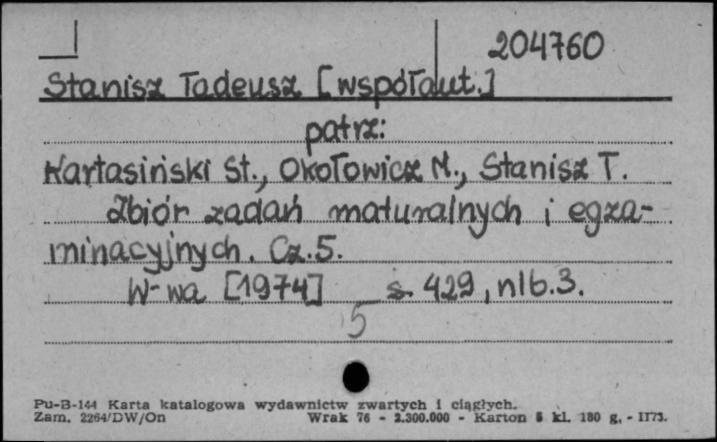 204760
Stanisz Tadeusz [współaut.]
patrz:
Kartasiński St., Okołowicz M., Stanisz T.
Zbiór zadań maturalnych i egza-
minacyjnych. Cz. 5.
W-wa [1974] s. 429, nlb. 3.
5
Pu-B-144 Karta katalogowa wydawnictw zwartych i ciągłych.
Zam. 2264/DW/On Wrak 76 - 2.300.000 - Karton kl. 180 g. - II73.